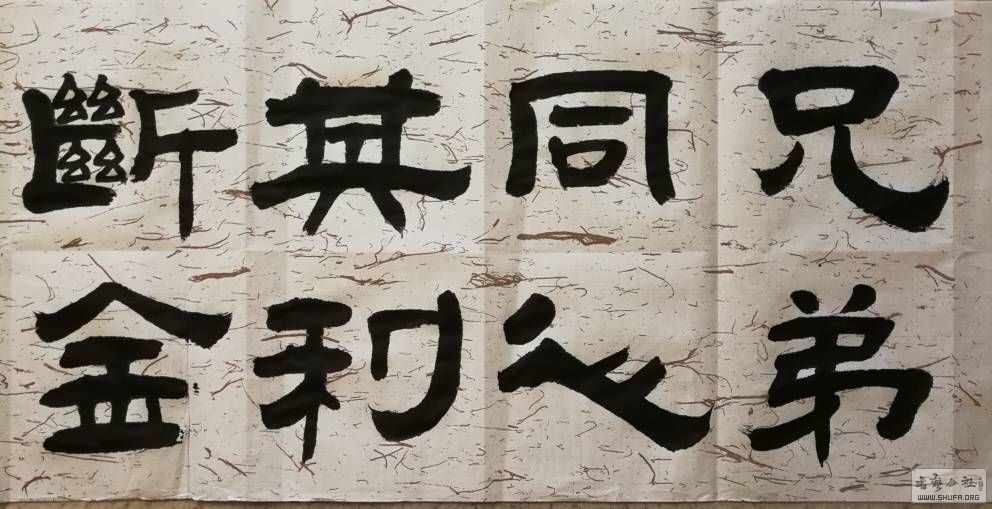 兄弟
同心
其利
斷金
WWW.SHUFA.ORG